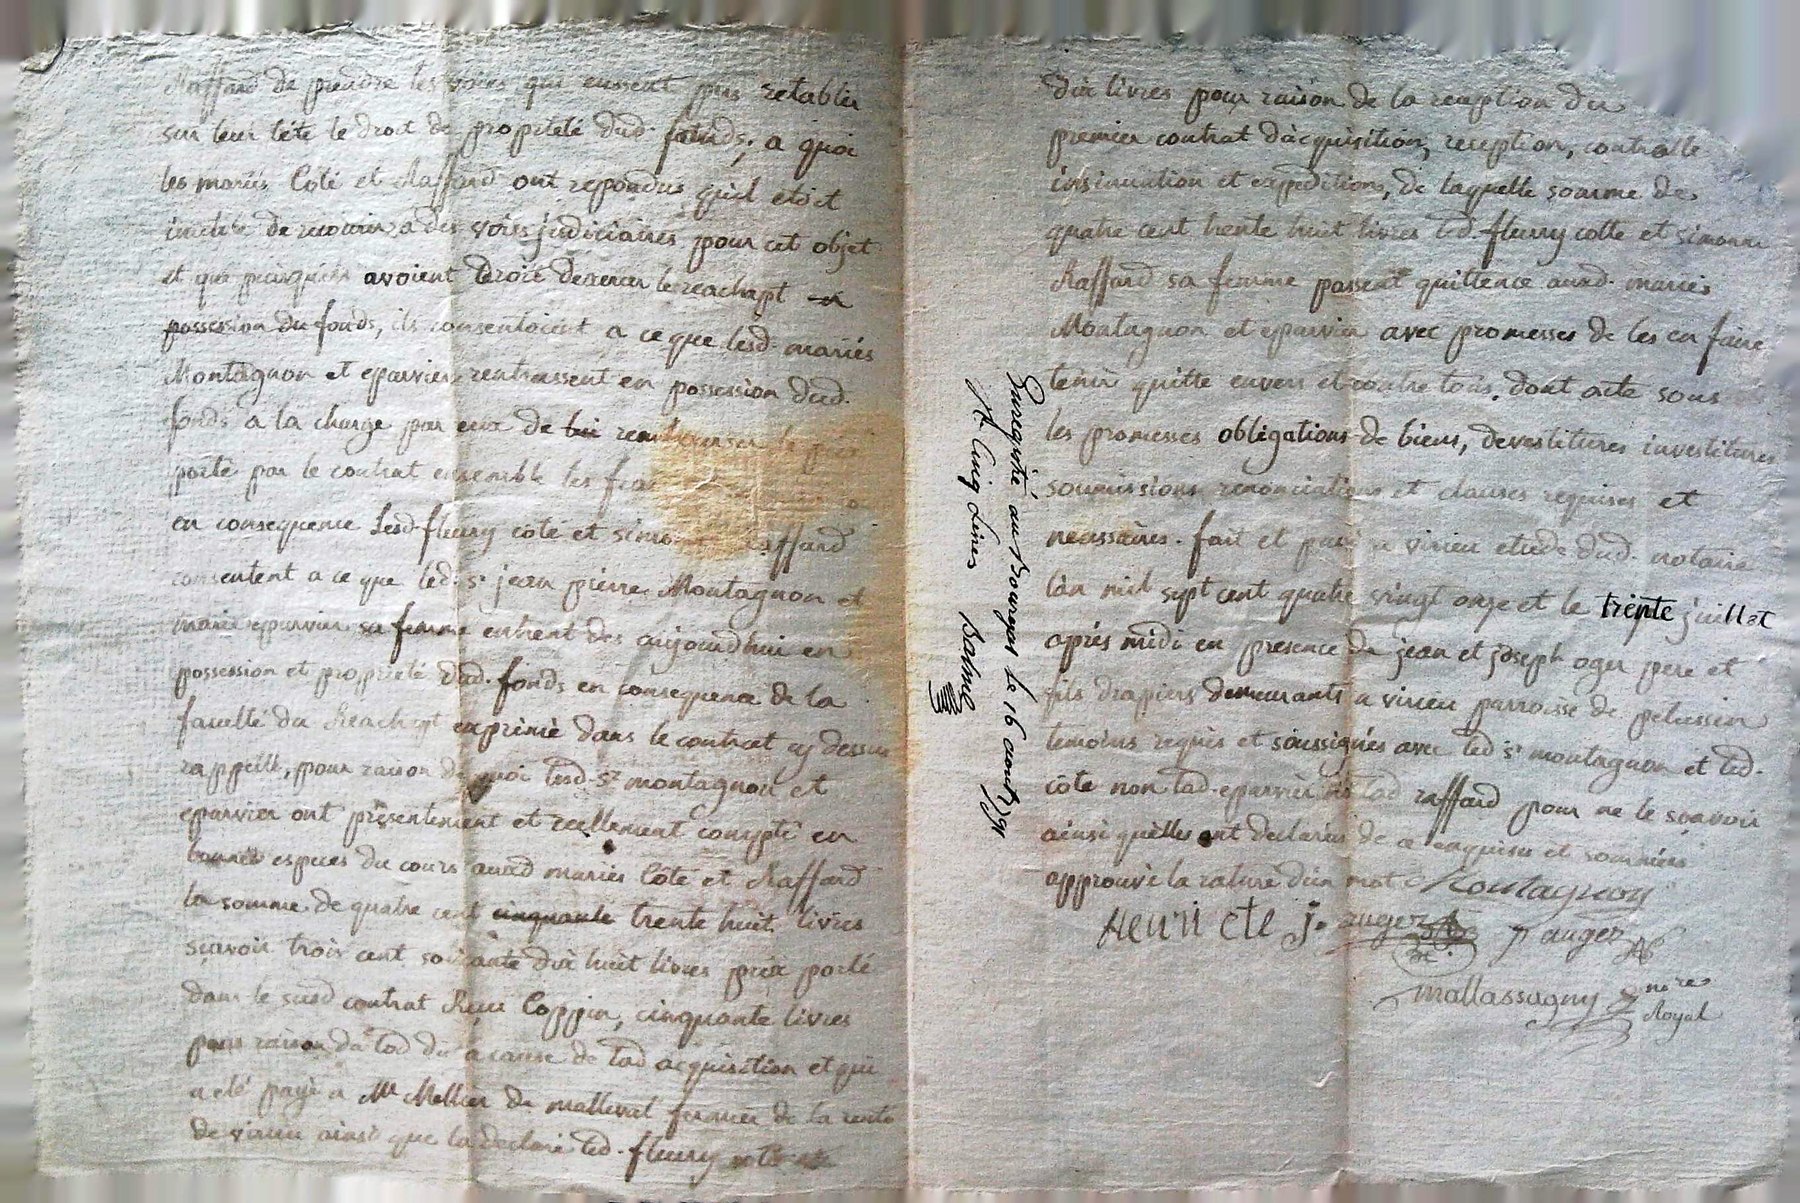 Raffard de prendre les voies qui eussent pus retablir
sur leur tête le droit de propriété dud. fonds; a quoi
les mariés Coté et Raffard ont repondus quil etoit
inutile de recourir a des voies judiciaires pour cet objet
et que puisquils avoient droit dexercer le reachapt
possession du fonds, ils consentoient a ce que lesd. mariés
Montagnon et eparvier rentrassent en possession dud.
fonds a la charge par eux de rembourser le prix
porté par le contrat ensemble les
en consequence lesd. fleury coté et simonne Raffard
consentent a ce que led. sr. jean pierre Montagnon et
marie eparvier sa femme entrent des aujourdhui en
possession et proprieté dud. fonds en consequence de la
faculté du Reachapt exprimé dans le contrat cy dessus
rappellé, pour raison de quoi lesd. sr. montagnon et
eparvier ont présentement et reellement compté en
bonnes especes du cours auxd mariés Coté et Raffard
la somme de quatre cent cinquante trente huit livres
sçavoir trois cent soixante dix huit livres prix porté
dans le susd contrat Reçu Coppin, cinquante livres
pour raison du lod du a cause de lad acquisition et qui
a eté payé a Mr Mellier de malleval fermier de la rente
de virieu ainsi que la declaré led. fleury
dix livres pour raison de la reception du
premier contrat dacquisition, reception, controlle
insinuation et expeditions, de laquelle somme de
quatre cent trente huit livres led. fleury cotte et simonne
Raffard sa femme passent quittence auxd. mariés
Montagnon et eparvier avec promesses de les en faire
tenir quitte envers et contre tous. dont acte sous
les promesses obligations de biens, devestitures investitures
soumissions renonciations et clauses requises et
necessaires. fait et passé a virieu etude dud. notaire
lan mil sept cent quatre vingt onze et le trente juillet
après midi en presence de jean et joseph oger pere et
fils drapiers demeurants a virieu parroisse de pelussin
temoins requis et soussignés avec led sr. montagnon et led.
coté non lad. eparvier ni lad raffard pour ne le sçavoir
ainsi quelles ont declarés de ce enquises et sommées
approuvé la rature d'un mot Montagnon
fleuri cte j. auger p auger
mallassagny nore
Royal
Enregistré au Bourgat le 16 aout 1791
Rt Cinq Livres Balme